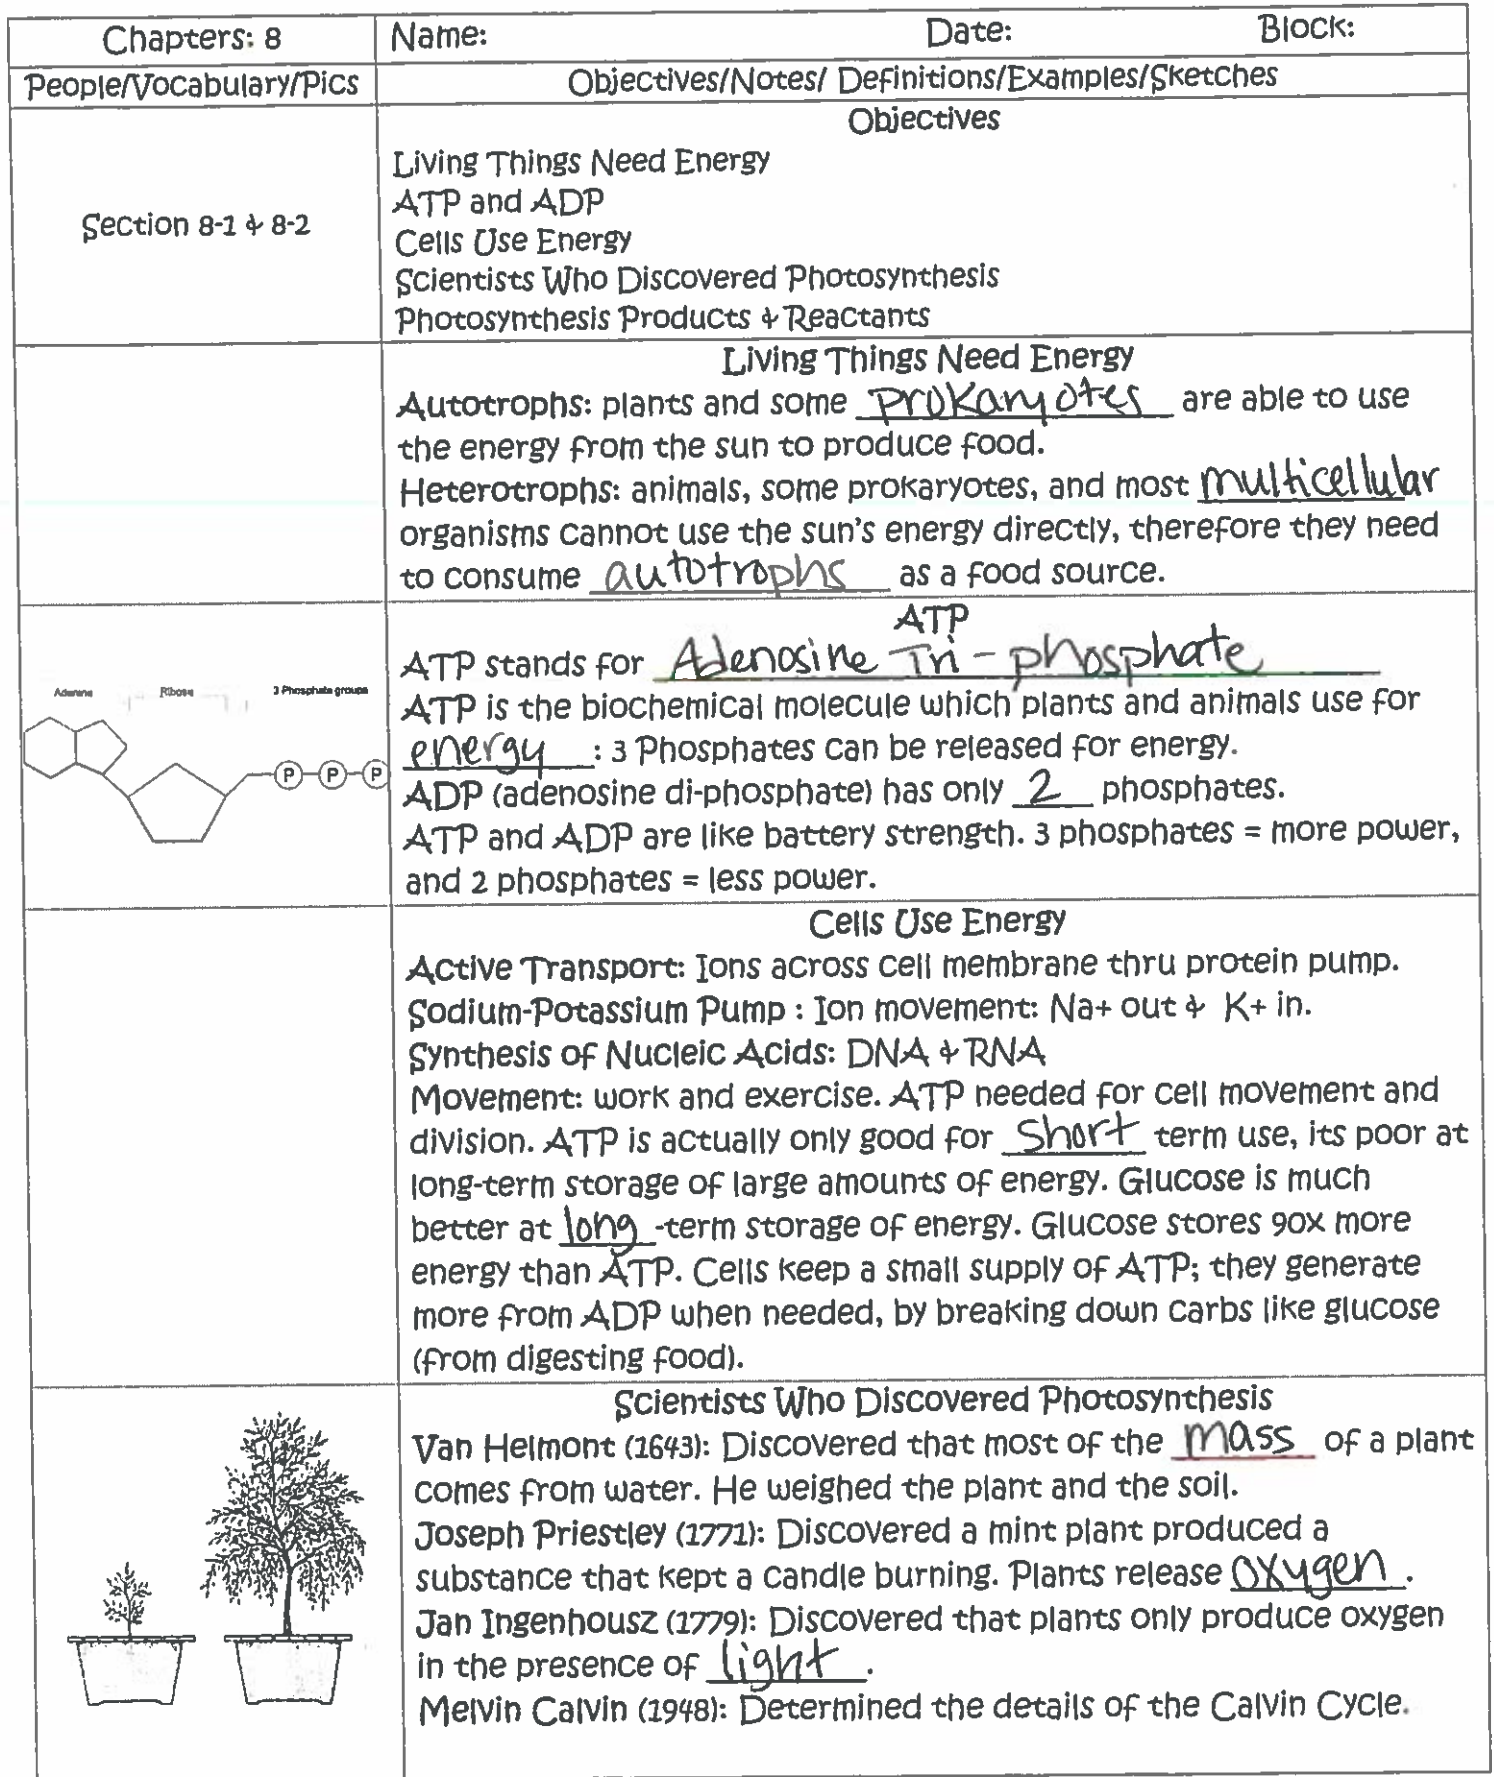 Chapters: 8 Name: Date: Block:
People/Vocabulary/Pics Objectives/Notes/ Definitions/Examples/Sketches
Objectives
Living Things Need Energy
ATP and ADP
Section 8-1 & 8-2
Cells Use Energy
Scientists Who Discovered Photosynthesis
Photosynthesis Products & Reactants
Living Things Need Energy
Autotrophs: plants and some prokaryotes are able to use
the energy from the sun to produce food.
Heterotrophs: animals, some prokaryotes, and most multicellular
organisms cannot use the sun's energy directly, therefore they need
to consume autotrophs as a food source.
ATP
ATP stands for Adenosine Tri-phosphate
Adenine Ribose 3 Phosphate groups
ATP is the biochemical molecule which plants and animals use for
energy : 3 Phosphates can be released for energy.
P P P
ADP (adenosine di-phosphate) has only 2 phosphates.
ATP and ADP are like battery strength. 3 phosphates = more power,
and 2 phosphates = less power.
Cells Use Energy
Active Transport: Ions across cell membrane thru protein pump.
Sodium-Potassium Pump : Ion movement: Na+ out & K+ in.
Synthesis of Nucleic Acids: DNA & RNA
Movement: work and exercise. ATP needed for cell movement and
division. ATP is actually only good for short term use, its poor at
long-term storage of large amounts of energy. Glucose is much
better at long -term storage of energy. Glucose stores 90x more
energy than ATP. Cells keep a small supply of ATP; they generate
more from ADP when needed, by breaking down carbs like glucose
(from digesting food).
Scientists Who Discovered Photosynthesis
Van Helmont (1643): Discovered that most of the mass of a plant
comes from water. He weighed the plant and the soil.
Joseph Priestley (1771): Discovered a mint plant produced a
substance that kept a candle burning. Plants release oxygen.
Jan Ingenhousz (1779): Discovered that plants only produce oxygen
in the presence of light.
Melvin Calvin (1948): Determined the details of the Calvin Cycle.